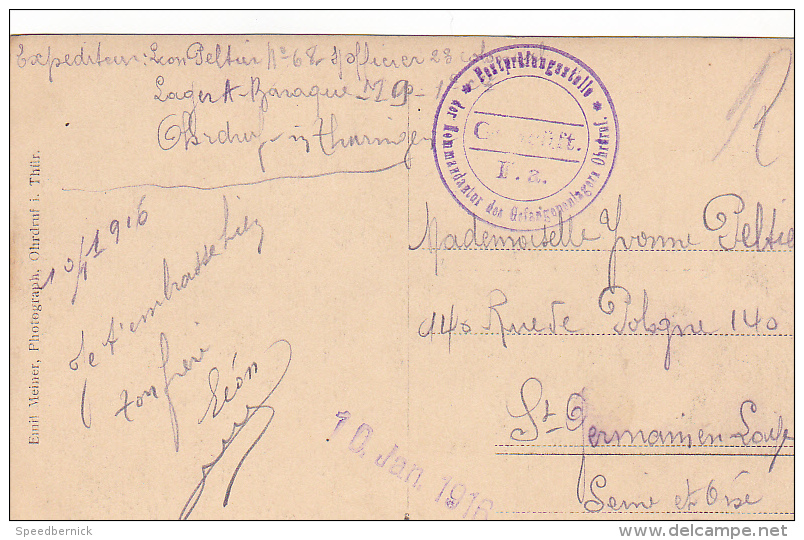 Expediteur: Léon Peltier No 68 S/officier 23 colonial
Lager A - Baraque 19
Ohrdruf in Thuringen
* Postprüfungsstelle *
der Kommandantur des Gefangenenlagers Ohrdruf.
Geprüft.
F. a.
R
10/1 1916
Je t'embrasse bien
ton frère
Léon
Emil Meiner, Photograph, Ohrdruf i. Thür.
10. Jan. 1916
Mademoiselle Yvonne Peltie
140 Rue de Pologne 140
St. Germain en Laye
Seine et Oise
Speedbernick
www.delcampe.net